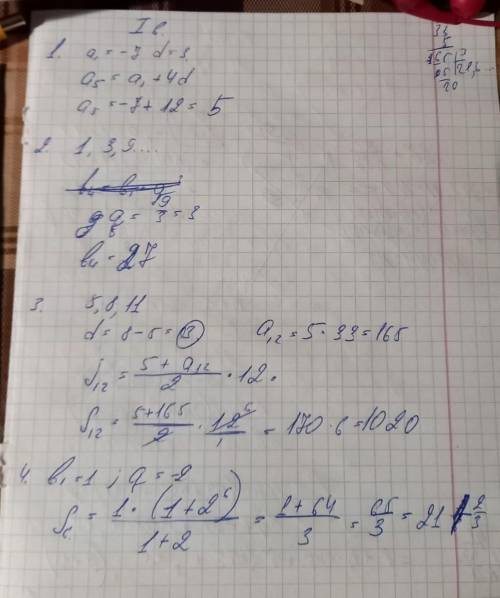 I в.
1. a₁ = -7 d = 3.
a₅ = a₁ + 4d
a₅ = -7 + 12 = 5
2. 1, 3, 9 ....
q = 9/3 = 3
b₄ = 27
3. 5, 8, 11
d = 8 - 5 = 3 a₁₂ = 5 · 33 = 165
S₁₂ = (5 + a₁₂)/2 · 12.
S₁₂ = (5+165)/2 · 12/1 = 170 · 6 = 1020
4. b₁ = 1 ; q = -2
S₆ = (1 · (1 + 2⁶))/(1 + 2) = (1 + 64)/3 = 65/3 = 21 2/3